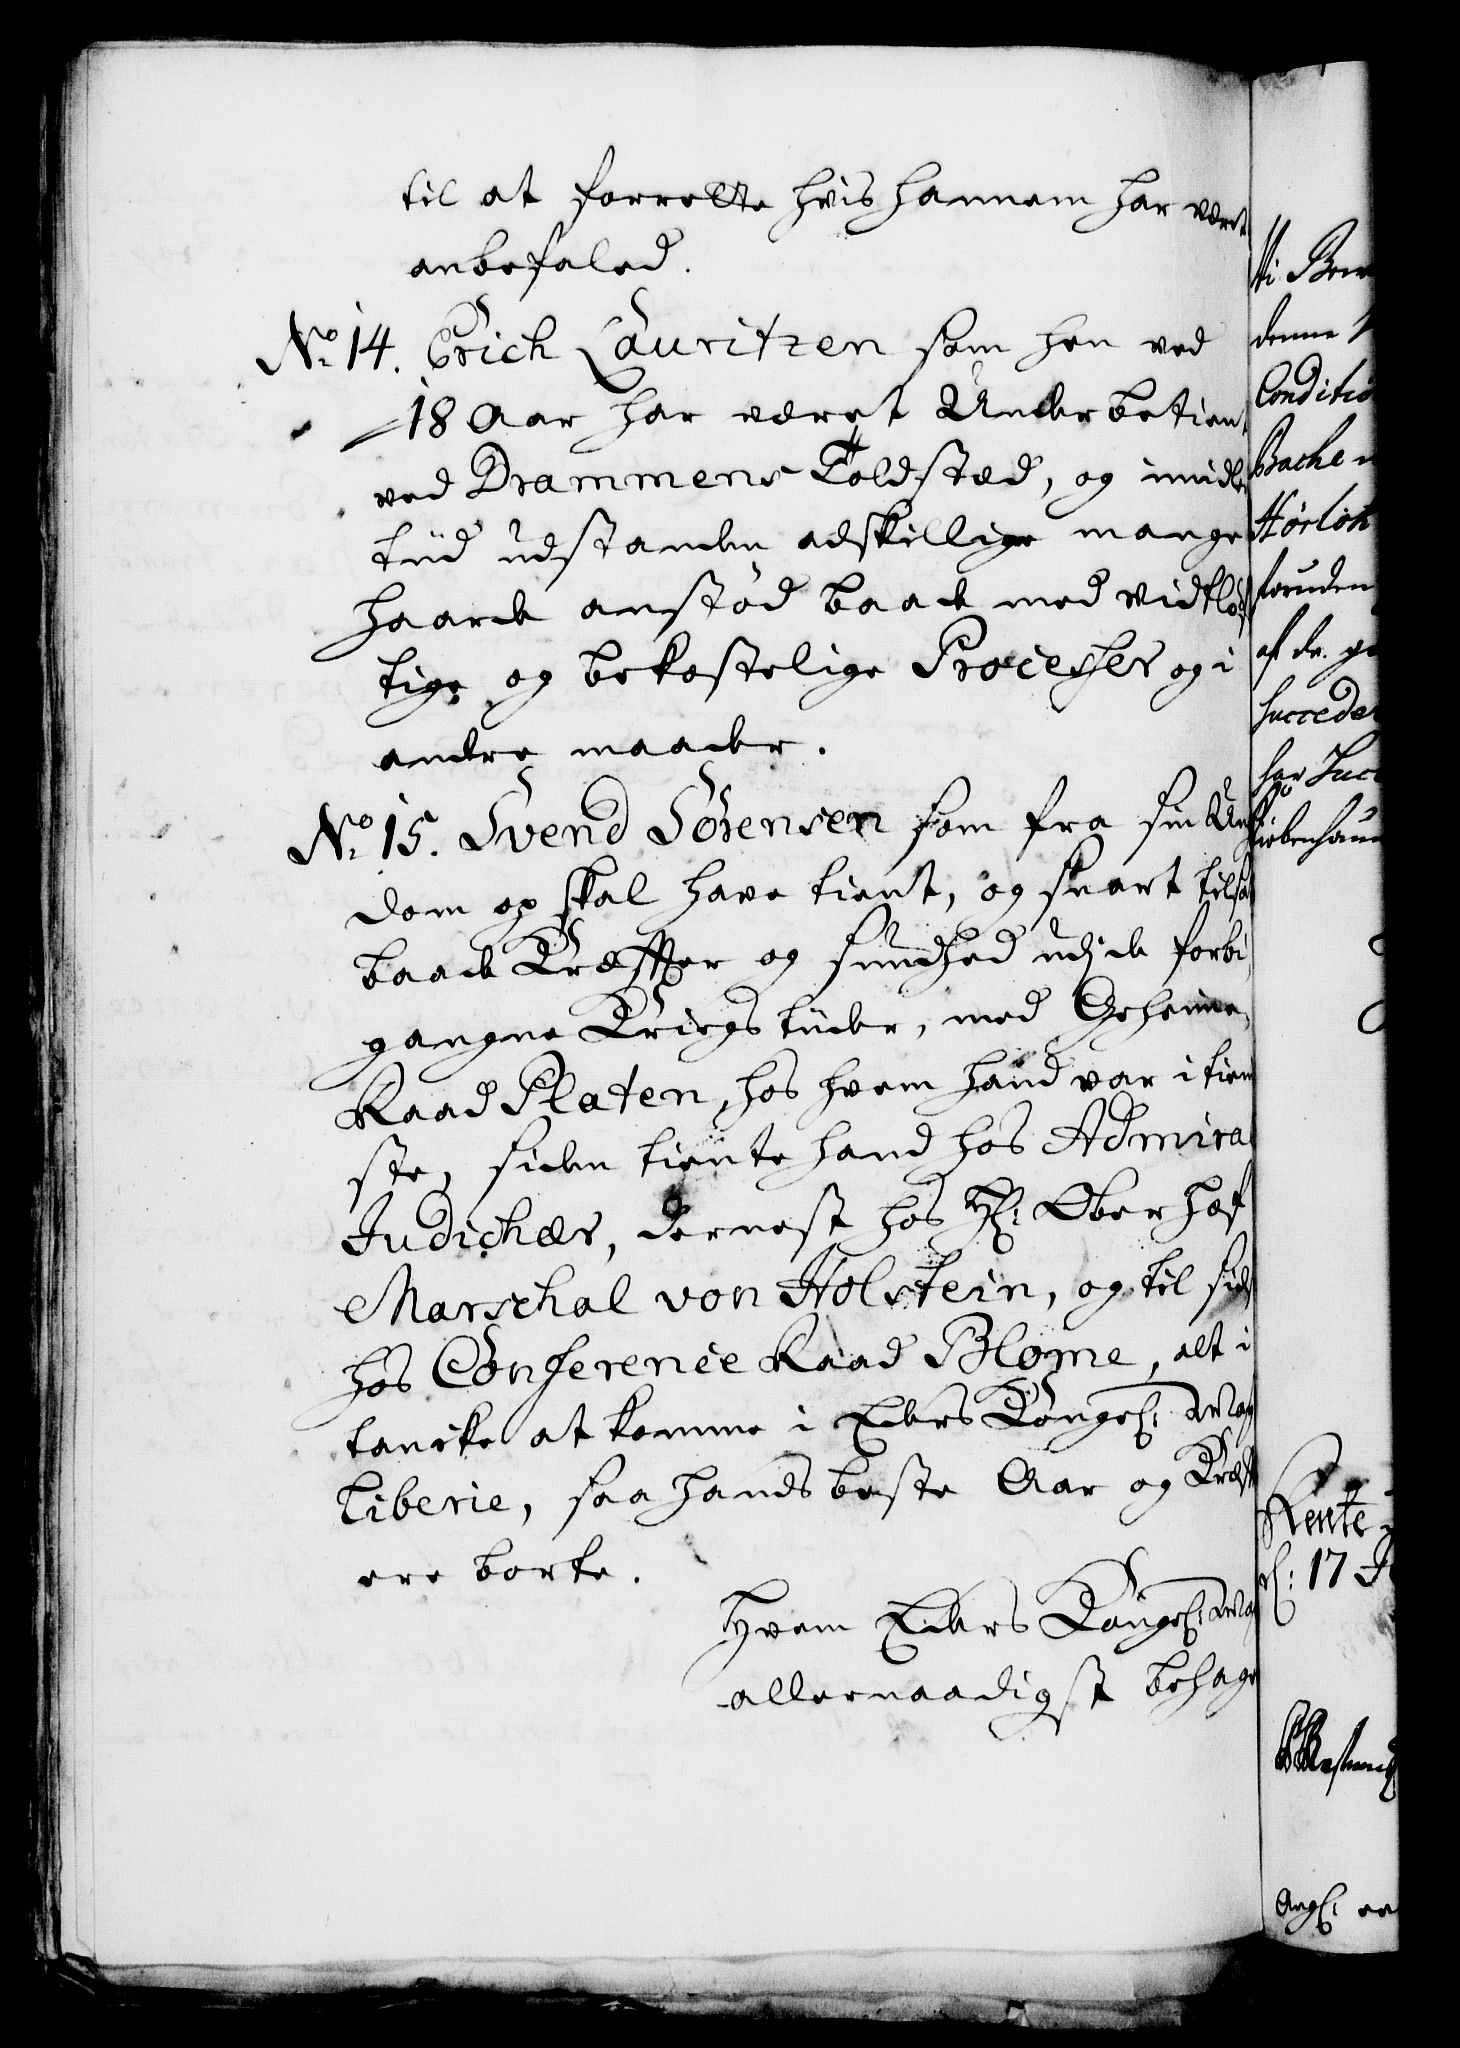 til at forrette hvis hannem har været
anbefaled.
No 14. Erich Lauritzen som hen ved
18 Aar har været Underbetient
ved Drammens Toldsted, og imidler
tiid udstanden adskillige mange
haarde anstød baade med vidtløf
tige og bekostelige Processer og i
andre maader.
No 15. Svend Sørensen som fra sin Un
dom op skal have tient, og snart tilsat
baade Kræffter og sundhed udj de forbi
gangne Kriegs tiider, med Geheime
Raad Platen, hos hvem hand var i tiene
ste, siden tiente hand hos Admiral
Judichær, dernest hos Hr: Ober Hof
Marschal von Holstein, og til sidst
hos Conference Raad Blome, alt i
tancke at komme i Eders Kongel: May
Liberie, saa hands beste Aar og Kræft
ere borte.
Hvem Eders Kongel: May
allernaadigst behage
ti
denne
Conditio
Bache
Hørlok
foruden
af de
succede
har Suc
Kiøbenhaun
Rente
d: 17